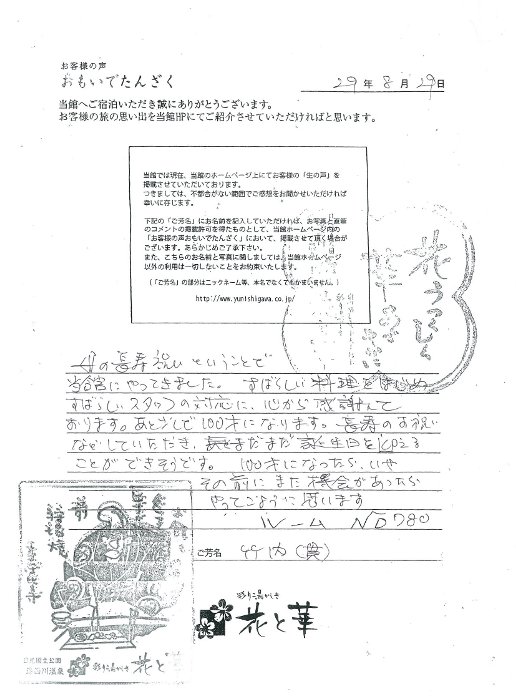 お客様の声
おもいでたんざく
29年8月29日
当館へご宿泊いただき誠にありがとうございます。
お客様の旅の思い出を当館HPにてご紹介させていただければと思います。
当館では現在、当館のホームページ上にてお客様の「生の声」を
掲載させていただいております。
つきましては、不都合がない範囲でご感想をお聞かせいただければ
幸いに存じます。
下記の「ご芳名」にお名前を記入していただければ、お写真と直筆
のコメントの掲載許可を得たものとして、当館ホームページ内の
「お客様の声おもいでたんざく」において、掲載させて頂く場合が
ございます。あらかじめご了承下さい。
また、こちらのお名前と写真に関しましては、当館ホームページ
以外の利用は一切しないことをお約束いたします。
(「ご芳名」の部分はニックネーム等、本名でなくてもかまいません。)
http://www.yunishigawa.co.jp/
花
母の長寿祝いということで
当館にやってきました。すばらしい料理をはじめ
すばらしいスタッフの対応に、心から感謝して
おります。あと少しで100才になります。長寿のお祝い
などしていただき、まだまだ誕生日を迎える
ことができそうです。100才になったら、いや
その前にまた機会があったら
やってこように思います
ルーム No 780
ご芳名 竹内
彩り湯かしき
花と華
日光国立公園
湯西川温泉 彩り湯かしき 花と華